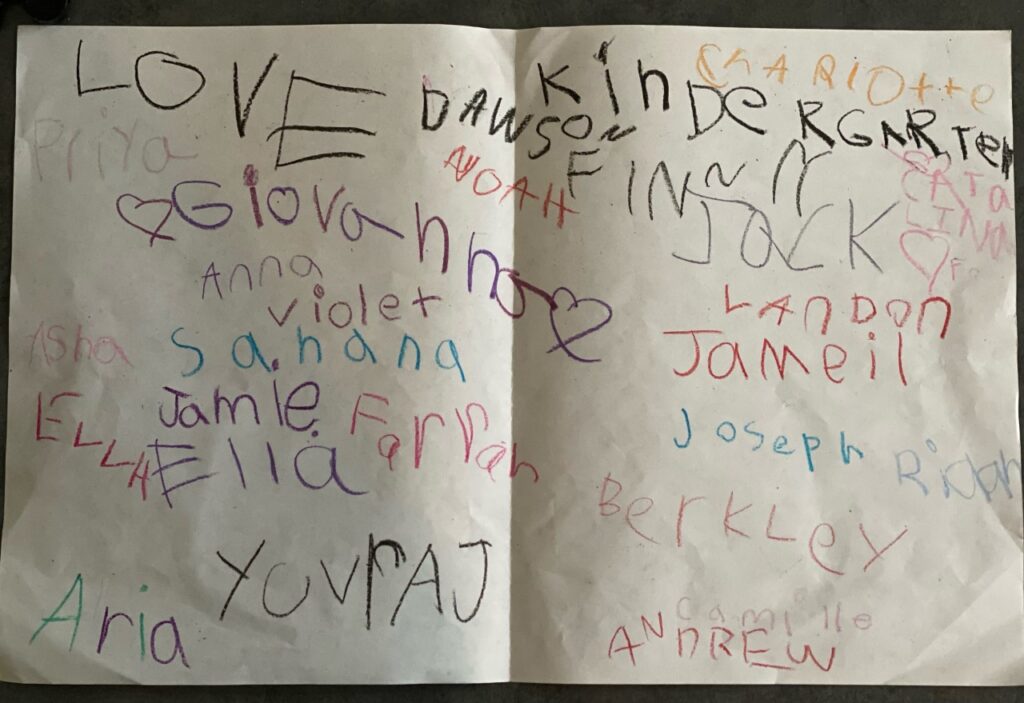 LOVE
KinDeRGARTen
CHARlOtte
DAWSON
Priya
NOAH
FINNN
CATa
LINa
Giovanna
JacK
Anna
violet
LANDON
Asha
Sahana
Jameil
Jamie
ELLA
Farrah
Joseph
Ella
BerKLey
YUVrAJ
camille
Aria
ANDREW